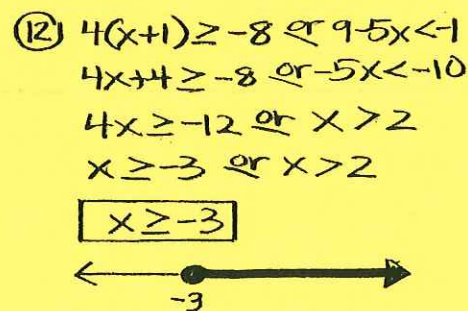 ⑫ 4(x+1)≥-8 or 9-5x<-1
4x+4≥-8 or -5x<-10
4x≥-12 or x>2
x≥-3 or x>2
x≥-3
-3